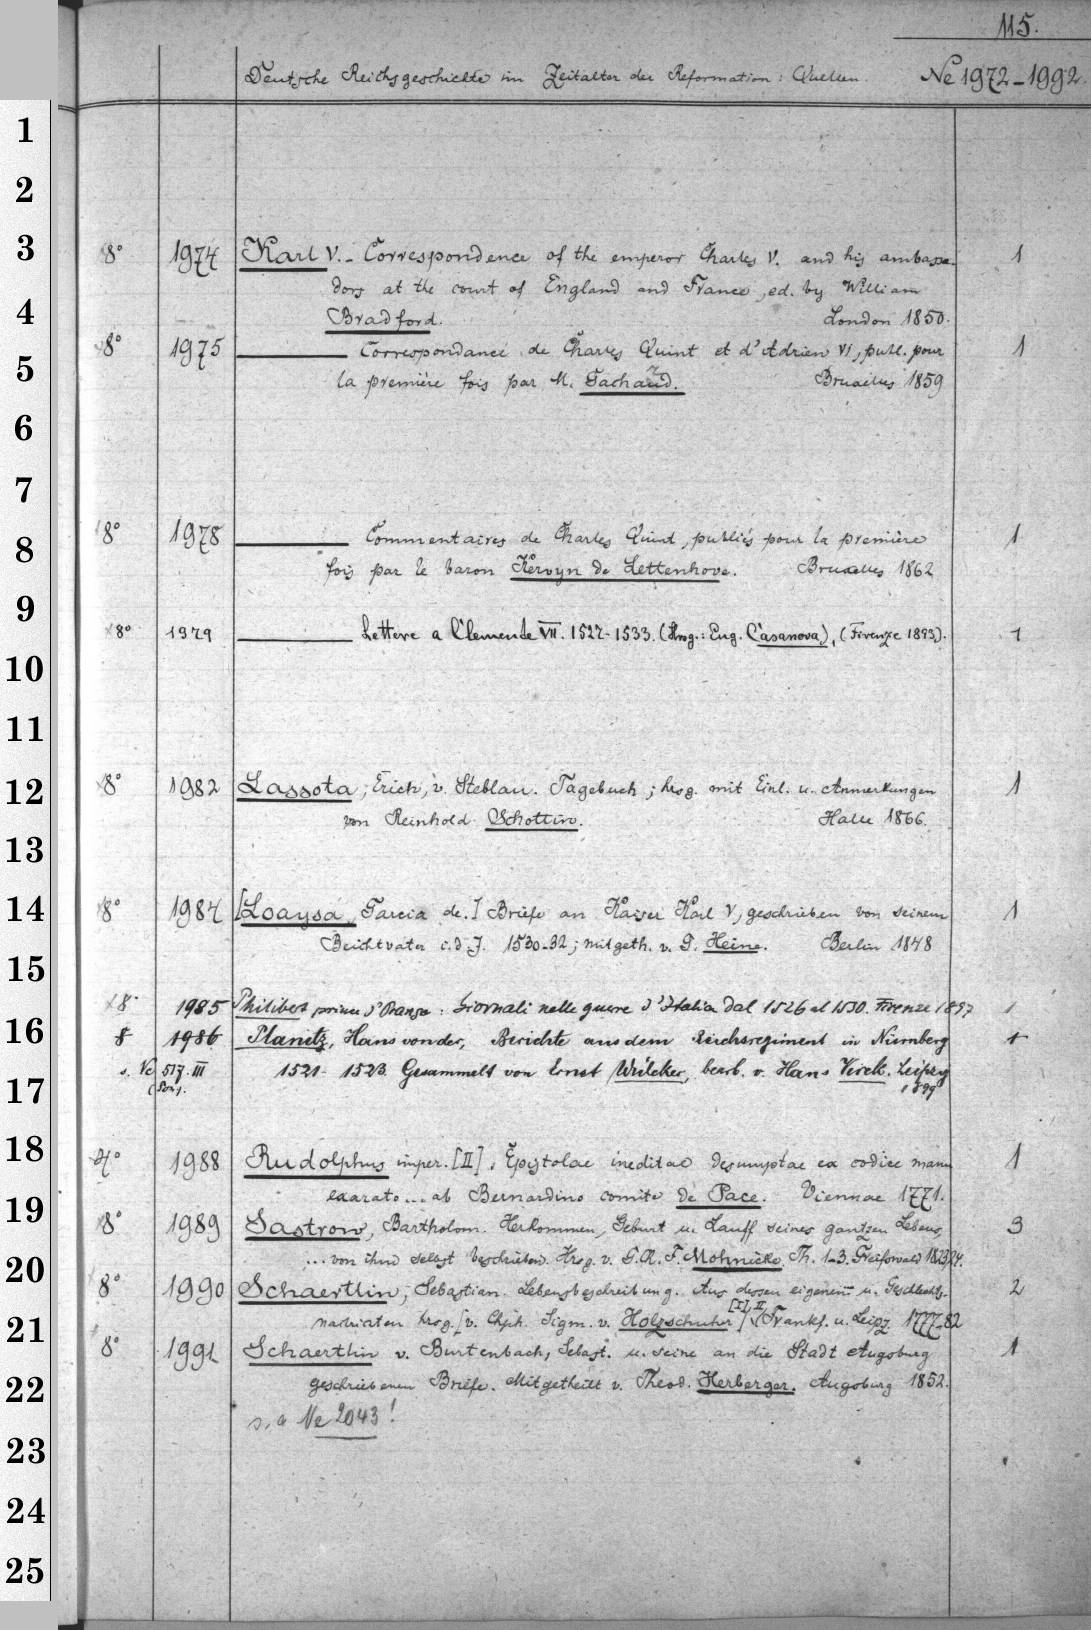 115.
Deutsche Reichsgeschichte im Zeitalter der Reformation: Quellen. Ne 1972-1992.
1
2
3 8° 1974 Karl V.- Correspondence of the emperor Charles V. and his ambassa- 1
dors at the court of England and France, ed. by William
4 Bradford. London 1850.
5 8° 1975 ——— Correspondance de Charles Quint et d'Adrien VI, publ. pour 1
la première fois par M. Gachard. Bruxelles 1859
6
7
8 8° 1978 ——— Commentaires de Charles Quint, publiés pour la première 1
fois par le baron Kervyn de Lettenhove. Bruxelles 1862
9 8° 1979 ——— Lettere a Clemente VII. 1527-1533. (Hrsg.: Eug. Casanova), (Firenze 1893). 1
10
11
12 8° 1982 Lassota, Erich, v. Steblau. Tagebuch; hrsg. mit Einl. u. Anmerkungen 1
von Reinhold Schottin. Halle 1866.
13
14 8° 1984 [Loaysa, Garcia de.] Briefe an Kaiser Karl V, geschrieben von seinem 1
Beichtvater i. d. J. 1530-32; mitgeth. v. G. Heine. Berlin 1848
15
8° 1985 Philibert prince d'Orange: Giornali nelle guerre d'Italia dal 1526 al 1530. Firenze 1897 1
16 8 1986 Planitz, Hans von der, Berichte aus dem Reichsregiment in Nürnberg 1
s. Ne 517 III 1521-1523. Gesammelt von Ernst Wülcker, bearb. v. Hans Virck. Leipzig
17 1899
18 4° 1988 Rudolphus imper. [II], Epistolae ineditae desumptae ex codice manu 1
exarato... ab Bernardino comite de Pace. Viennae 1771.
19 8° 1989 Sastrow, Bartholom. Herkommen, Geburt u. Lauff seines gantzen Lebens, 3
20 ... von ihm selbst beschrieben. Hrsg. v. G. Ch. F. Mohnicke Th. 1-3. Greifswald 1823/24.
8° 1990 Schaertlin, Sebastian. Lebensbeschreibung. Aus dessen eigenen u. Geschlechts- 2
21 nachrichten hrsg. [v. Chph. Sigm. v. Holzschuher] [I], II (Frankf. u. Leipz. 1777-82
8° 1991 Schaertlin v. Burtenbach, Sebast. u. seine an die Stadt Augsburg 1
22 geschriebenen Briefe. Mitgetheilt v. Theod. Herberger. Augsburg 1852.
s. a Ne 2043!
23
24
25